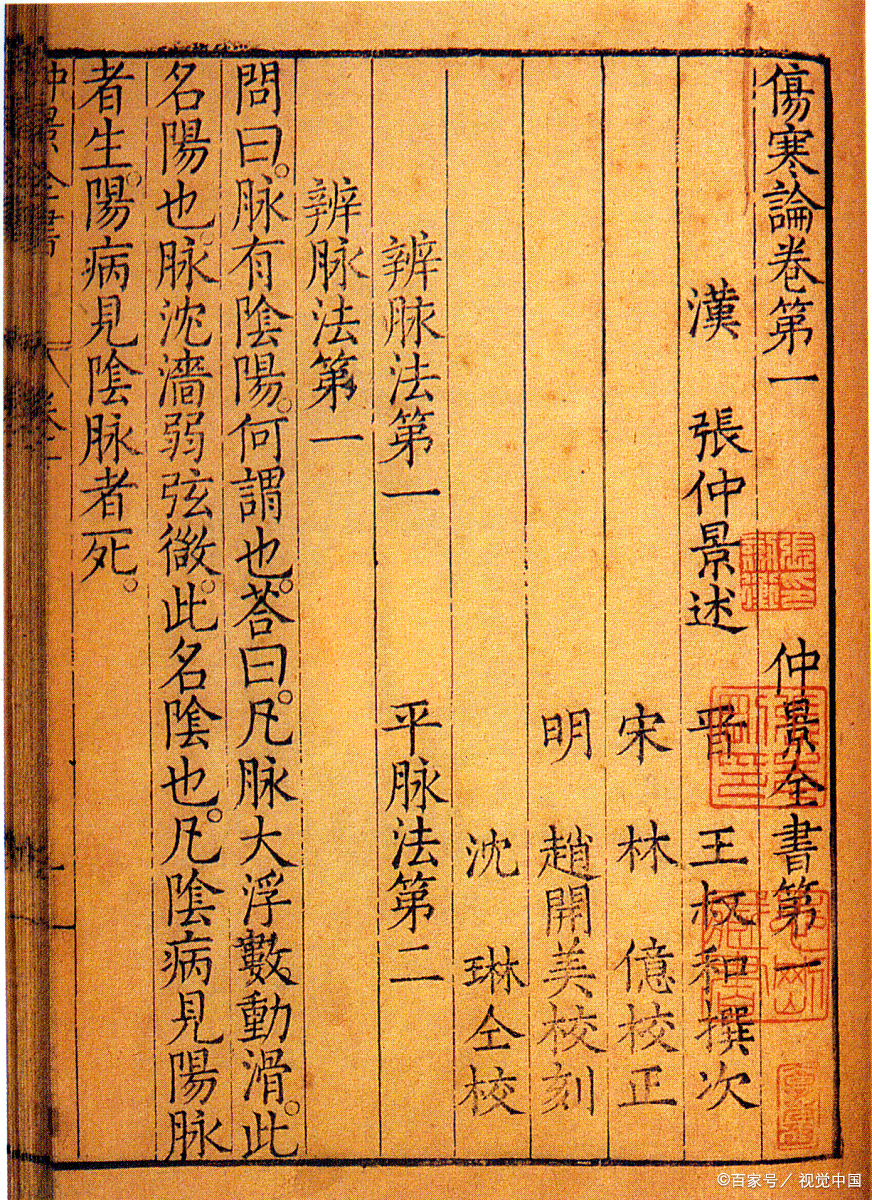 傷寒論卷第一　仲景全書第一
漢　張仲景述　晉　王叔和撰次
宋　林　億校正
明　趙開美校刻
沈　琳仝校
辨脉法第一　平脉法第二
辨脉法第一
問曰。脉有陰陽。何謂也。荅曰。凡脉大浮數動滑。此
名陽也。脉沈濇弱弦微。此名陰也。凡陰病見陽脉
者生。陽病見陰脉者死。
仲景全書　卷一　一
©百家号／视觉中国